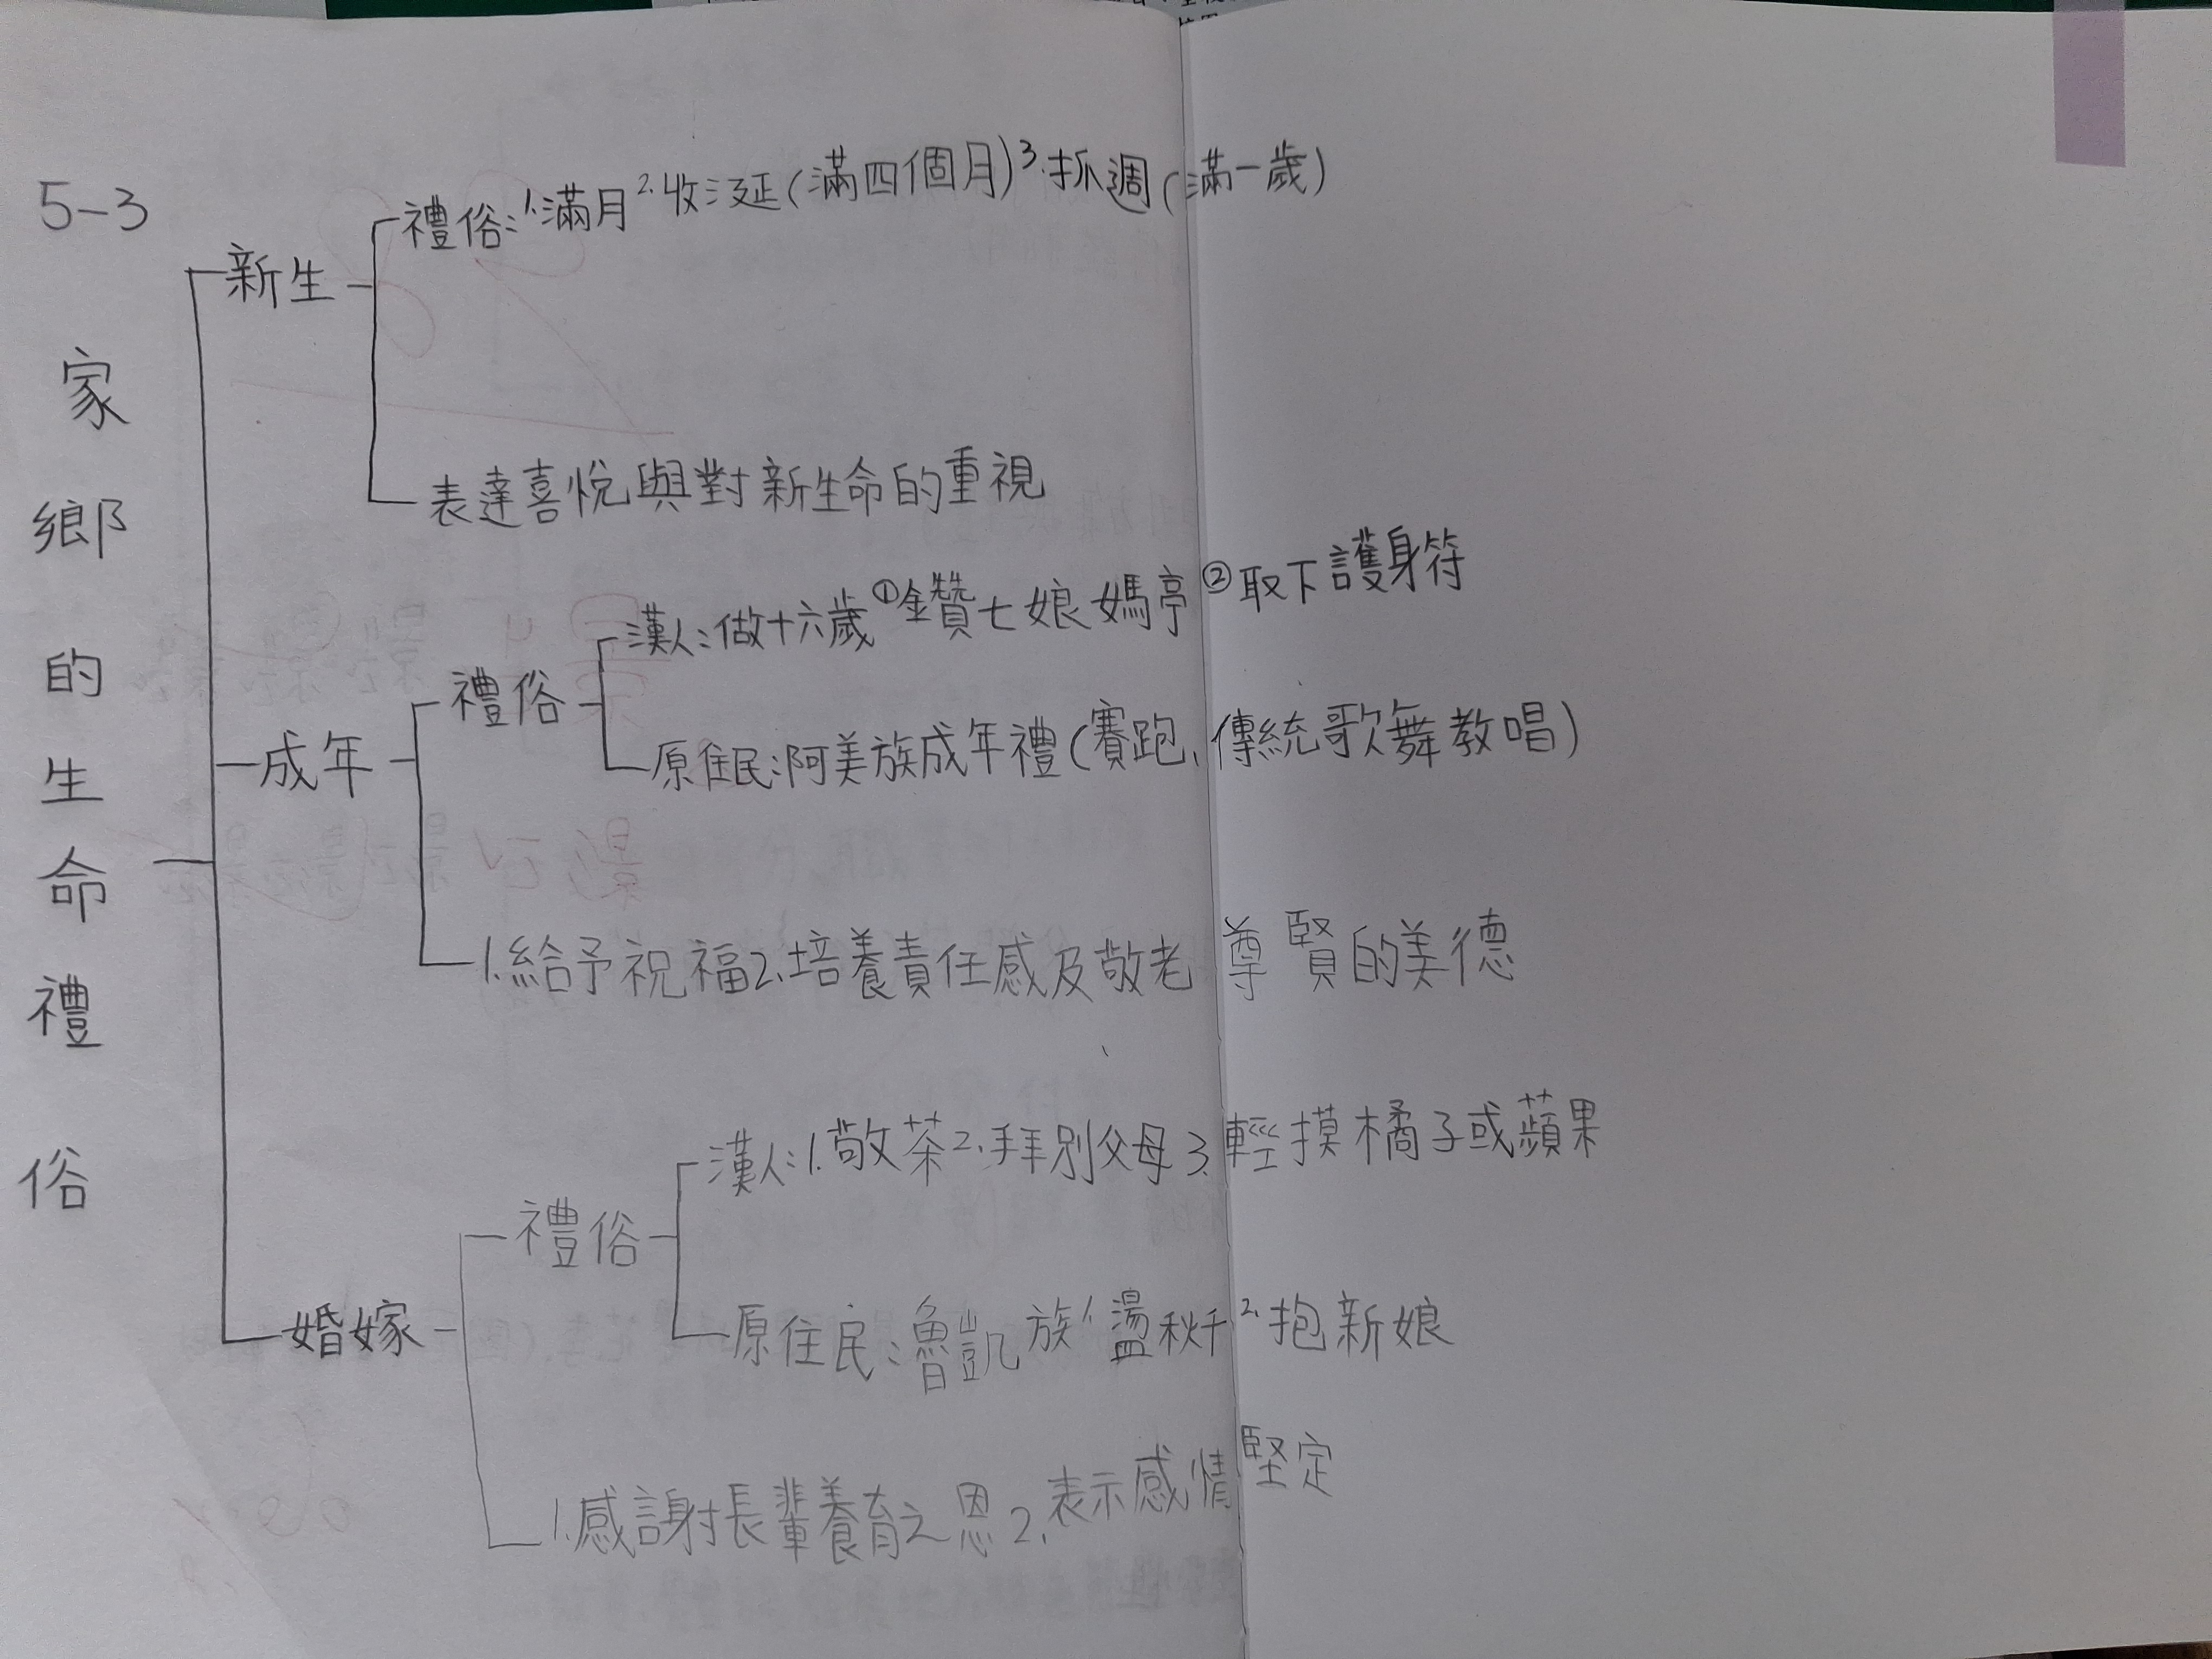 5-3
家鄉的生命禮俗
新生
禮俗:1.滿月2.收涎(滿四個月)3.抓週(滿一歲)
表達喜悅與對新生命的重視
成年
禮俗
漢人:做十六歲①鑽七娘媽亭②取下護身符
原住民:阿美族成年禮(賽跑、傳統歌舞教唱)
1.給予祝福2.培養責任感及敬老尊賢的美德
婚嫁
禮俗
漢人:1.敬茶2.拜別父母3.輕摸橘子或蘋果
原住民:魯凱族1.盪秋千2.抱新娘
1.感謝長輩養育之恩2.表示感情堅定